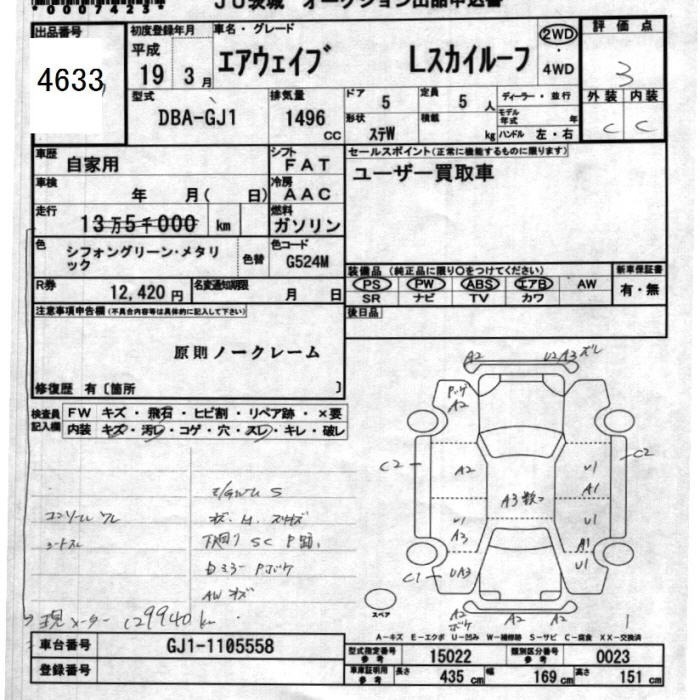 00074234
JU茨城 オークション出品申込書
出品番号
4633
初度登録年月
平成
19 3月
車名・グレード
エアウェイブ Lスカイルーフ
2WD
・
4WD
評価点
3
外装 内装
C C
型式
DBA-GJ1
排気量
1496
cc
ドア
5
定員
5人
ディーラー・並行
形状
ステW
積載
kg
モデル年式
年
ハンドル 左・右
車歴
自家用
シフト
FAT
車検
年 月( 日)
冷房
AAC
走行
13万5千000 km
燃料
ガソリン
色
シフォングリーン・メタリック
色替
色コード
G524M
R券
12,420円
名変通知期限
月 日
セールスポイント(正常に機能するものに限ります)
ユーザー買取車
装備品(純正品に限り○をつけてください)
PS PW ABS エアB AW
SR ナビ TV カワ
新車保証書
有・無
後日品
注意事項申告欄(不具合内容等は具体的に記入して下さい)
原則ノークレーム
修復歴 有〔箇所 〕
検査員記入欄
FW キズ・飛石・ヒビ割・リペア跡・×要
内装 キズ・汚レ・コゲ・穴・スレ・キレ・破レ
A2 U2 A3 ズレ
A2
C2 A2 U1 C2
A1
A3数コ
U1 U1
A3 A1
C1 UA3 U1
A2 A2 A2
ボケ
スペア
コンソールワレ
シートスレ
下廻り SC P跡.
AW キズ
現メーター 129940km
A-キズ E-エクボ U-凹み W-補修跡 S-サビ C-腐食 XX-交換済
車台番号
GJ1-1105558
登録番号
型式指定番号
参考
15022
類別区分番号
参考
0023
車庫証明用
参考
長さ 435 cm 幅 169 cm 高さ 151 cm